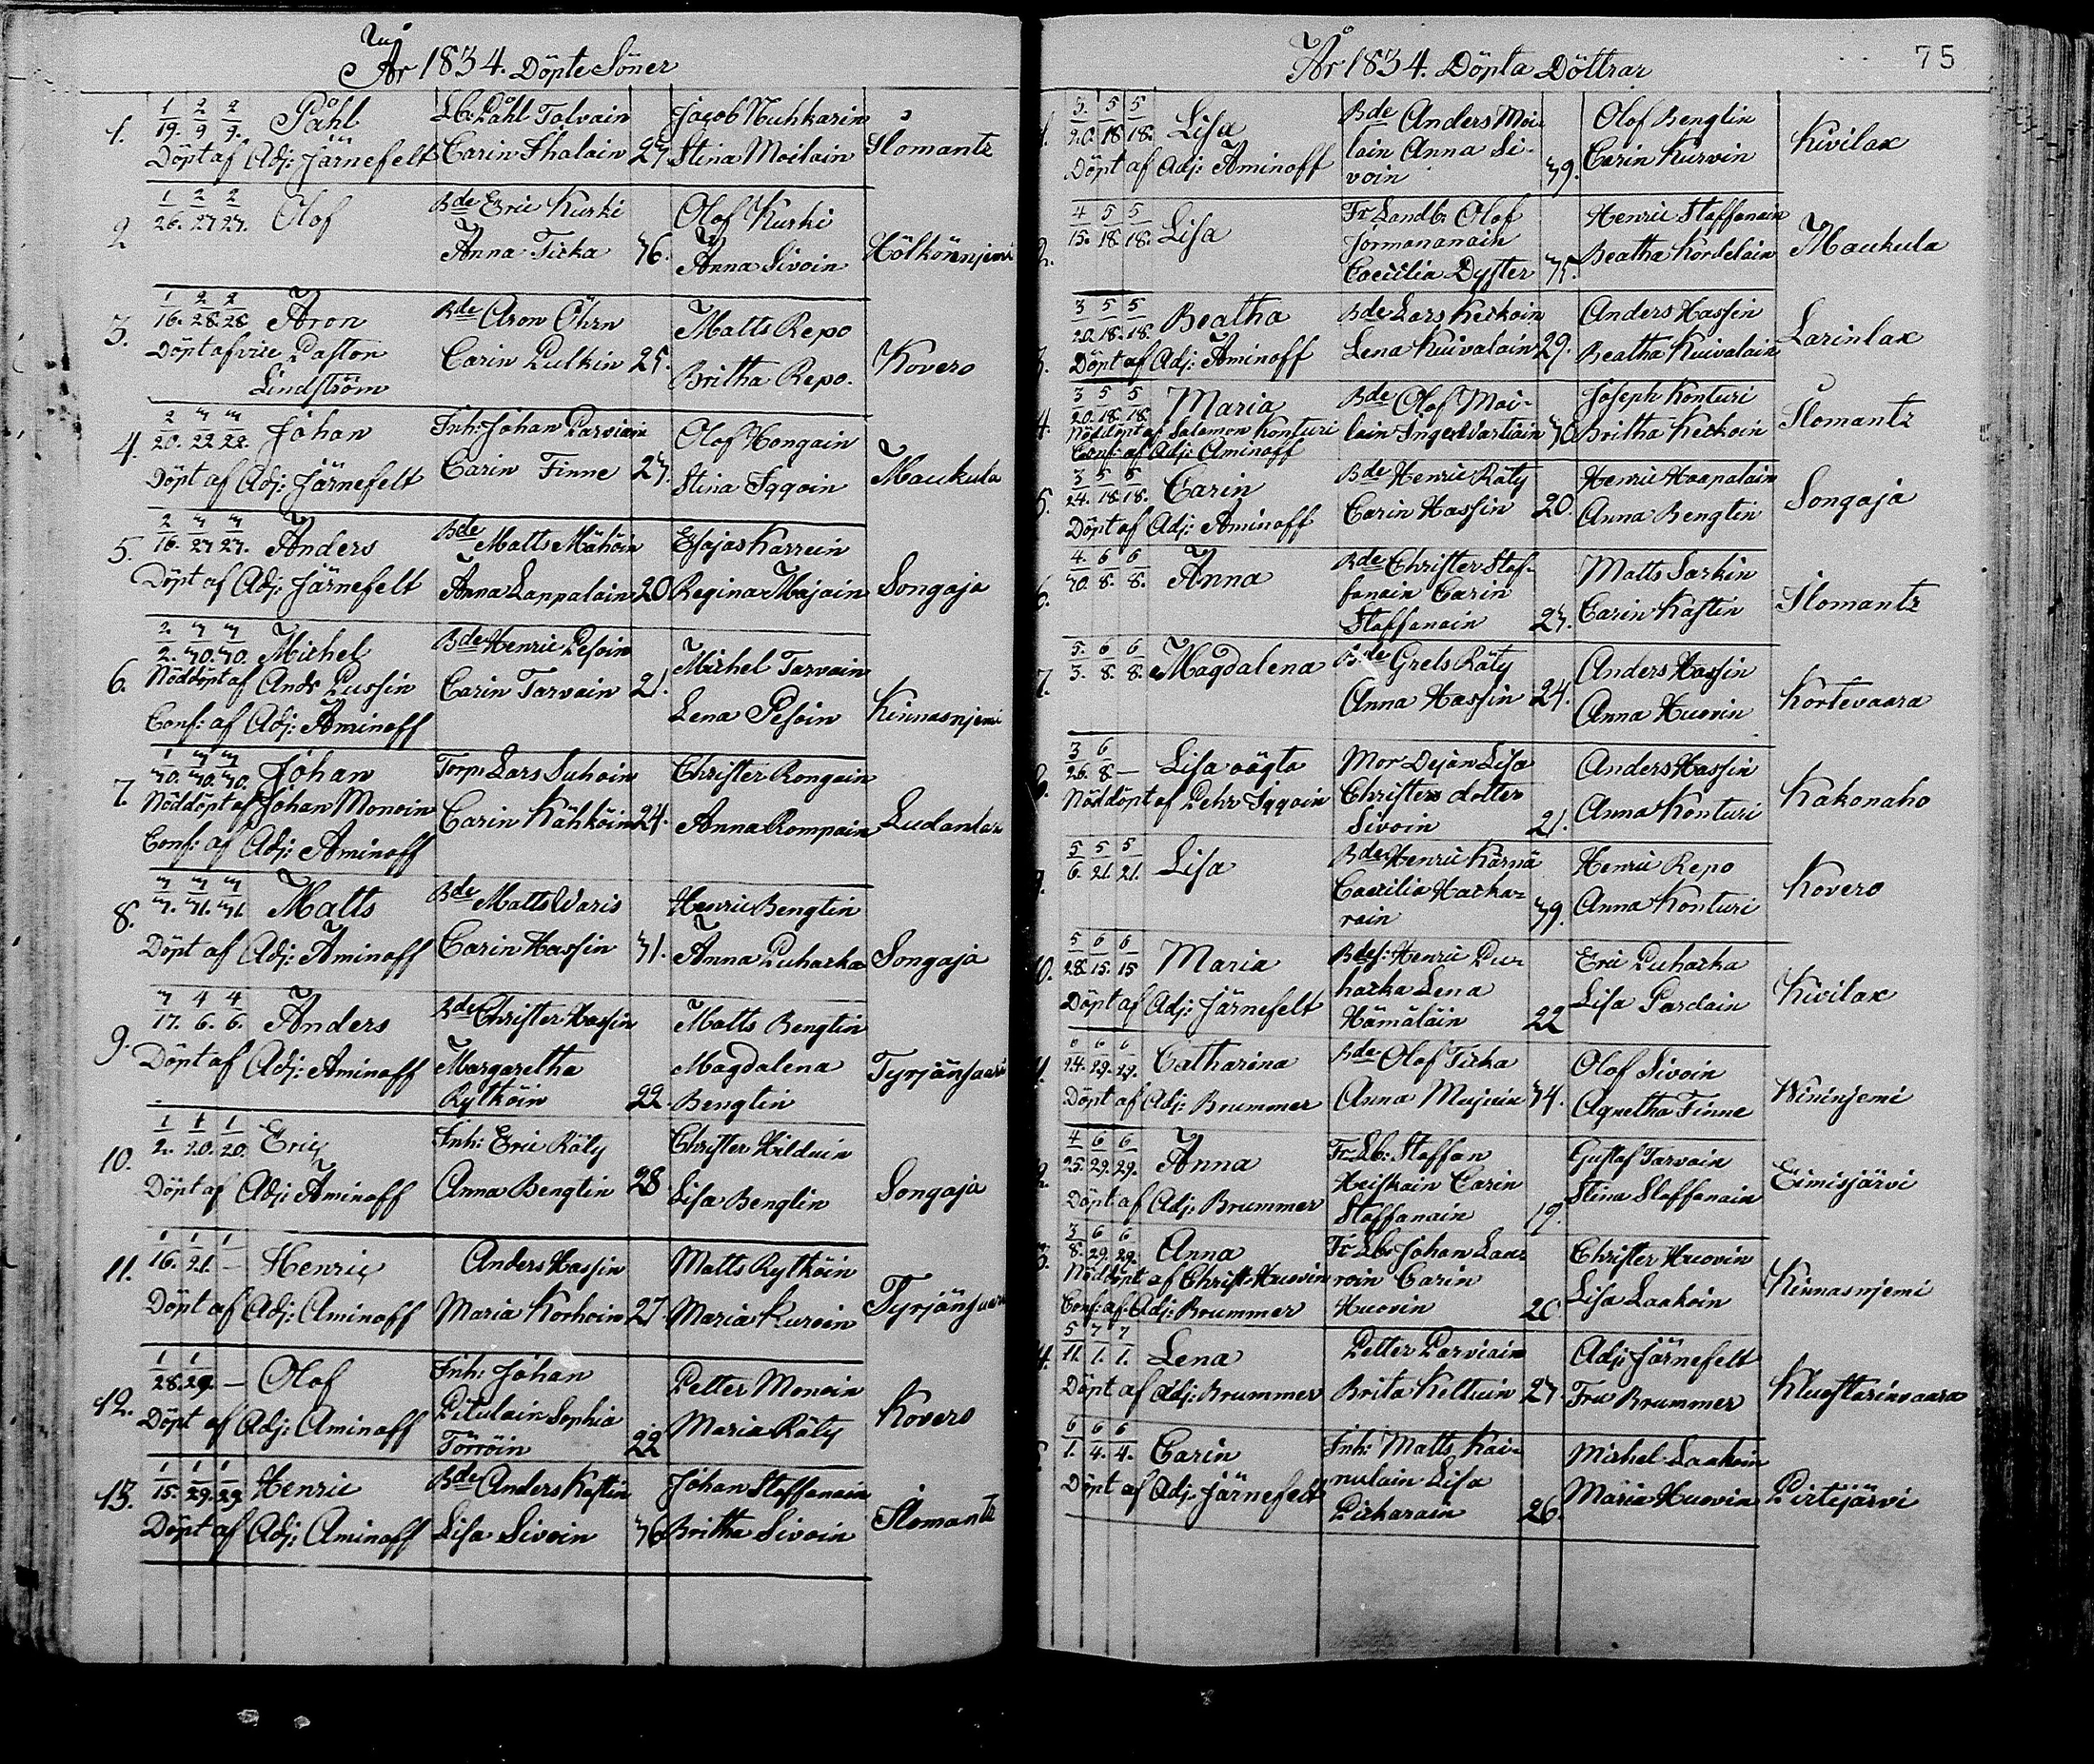 År 1834. Döpte Söner
1. 1/19. 2/9 2/9. Påhl Lb. Påhl Tolvain Jacob Nuhkarin
Döpt af Adj: Järnefelt Carin Ihalain 23. Stina Moilain Ilomantz
2 1/26. 2/27 2/27. Olof Bde Eric Kurki Olof Kurki
Anna Ticka 36. Anna Sivoin Hölkönnjemi
3. 1/16. 2/28. 2/28 Aron Bde Aron Öhrn Matts Repo
Döpt af vice Pastor Carin Pulkin 25. Britha Repo. Kovero
Lindström
4. 2/20. 3/22 3/22. Johan Inh: Johan Parviain Olof Hongain
Döpt af Adj: Järnefelt Carin Finne 23. Stina Iggoin Maukula
5. 2/16. 3/27 3/27. Anders Bde Matts Mähöin Esajas Karrein
Döpt af Adj: Järnefelt Anna Lappalain 20. Regina Majain Songaja
6. 2/2. 3/30. 3/30. Michel Bde Henric Pesoin Michel Tarvain
Nöddöpt af Andr Pussin Carin Tarvain 21. Lena Pesoin Kinnasnjemi
Conf: af Adj: Aminoff
7. 1/30. 3/30. 3/30. Johan Torp: Lars Suhoin Christer Rongain
Nöddöpt af Johan Monoin Carin Kähköin 24. Anna Rompain
Conf: af Adj: Aminoff
8. 3/3. 3/31. 3/31. Matts Bde Matts Waris Henric Bengtin
Döpt af Adj: Aminoff Carin Hassin 31. Anna Puhacka Songaja
9. 3/17. 4/6. 4/6. Anders Bde Christer Hassin Matts Bengtin
Döpt af Adj: Aminoff Margaretha Magdalena Tyrjänsaari
Rytköin 22. Bengtin
10. 1/2. 1/20. 1/20. Eric Inh: Eric Räty Christer Hilduin
Döpt af Adj: Aminoff Anna Bengtin 28 Lisa Bengtin Songaja
11. 1/16. 1/21 – Henric Anders Hassin Matts Rytköin
Döpt af Adj: Aminoff Maria Korhoin 27. Maria Kurvin Tyrjänsaari
12. 1/28. 1/29. – Olof Inh: Johan Petter Monoin
Döpt af Adj: Aminoff Pitulain Sophia Maria Räty Kovero
Törröin 22
13. 1/15. 1/29. 1/29 Henric Bde Anders Kastin Johan Staffanain
Döpt af Adj: Aminoff Lisa Sivoin 36 Britha Sivoin Ilomantz
År 1834. Döpta Döttrar 75
1. 3/20. 5/18 5/18. Lisa Bde Anders Moi- Olof Bengtin
Döpt af Adj: Aminoff lain Anna Si- Carin Kurvin Kivilax
voin 39.
2. 4/15. 5/18. 5/18. Lisa Fr. Landb. Olof Henric Staffanain
Jormananain Beatha Kordelain Maukula
Caecilia Dyster 35.
3. 3/20. 5/18. 5/18. Beatha Bde Lars Keckoin Anders Hassin
Döpt af Adj: Aminoff Lena Kuivalain 29. Beatha Kuivalain Larinlax
4. 3/20. 5/18. 5/18. Maria Bde Olof Moi- Joseph Konturi
Nöddöpt af Salamon Konturi lain Inger Vartiain 30 Britha Keckoin Ilomantz
Conf: af Adj: Aminoff
5. 3/24. 5/18. 5/18. Carin Bde Henric Räty Henric Haapalain
Döpt af Adj: Aminoff Carin Hassin 20. Anna Bengtin Songaja
6. 4/30. 6/8. 6/8. Anna Bde Christer Staf- Matts Sarkin
fanain Carin Carin Kastin Ilomantz
Staffanain 23.
7. 5/3. 6/8. 6/8. Magdalena Bde Grels Räty Anders Hassin
Anna Hassin 24. Anna Huovin Kortevaara
8. 3/26. 6/8. – Lisa oägta Mor Dejan Lisa Anders Hassin
Nöddöpt af Pehr Iggoin Christers dotter Anna Konturi Kakonaho
Sivoin 21.
9. 5/6. 5/21. 5/21. Lisa Bde Henric Kärnä Henric Repo
Caecilia Hacka- Anna Konturi Kovero
rain 39.
10. 5/28. 6/15. 6/15 Maria Bdes: Henric Pu- Eric Puhacka
Döpt af Adj: Järnefelt hacka Lena Lisa Pardain Kivilax
Hämäläin 22
11. 6/24. 6/29. 6/29. Catharina Bde Olof Ticka Olof Sivoin
Döpt af Adj: Brummer Anna Mujuin 34. Agnetha Finne
12. 4/25. 6/29. 6/29. Anna Fr. Lb: Staffan Gustaf Tarvain
Döpt af Adj: Brummer Heiskain Carin Stina Staffanain Eimisjärvi
Staffanain 19.
13. 3/8. 6/29. 6/29. Anna Fr. Lb: Johan Laa- Christer Huovin
Nöddöpt af Christ. Huovin roin Carin Lisa Laakoin Kinnasnjemi
Conf: af Adj: Brummer Huovin 20
14. 5/11. 7/1. 7/1. Lena Petter Parviain Adj: Järnefelt
Döpt af Adj: Brummer Brita Keltuin 23 Fru Brummer
15. 6/1. 6/4. 6/4. Carin Inh: Matts Kai- Michel Laakoin
Döpt af Adj. Järnefelt nulain Lisa Maria Huovin Pirtijärvi
Pickarain 26.